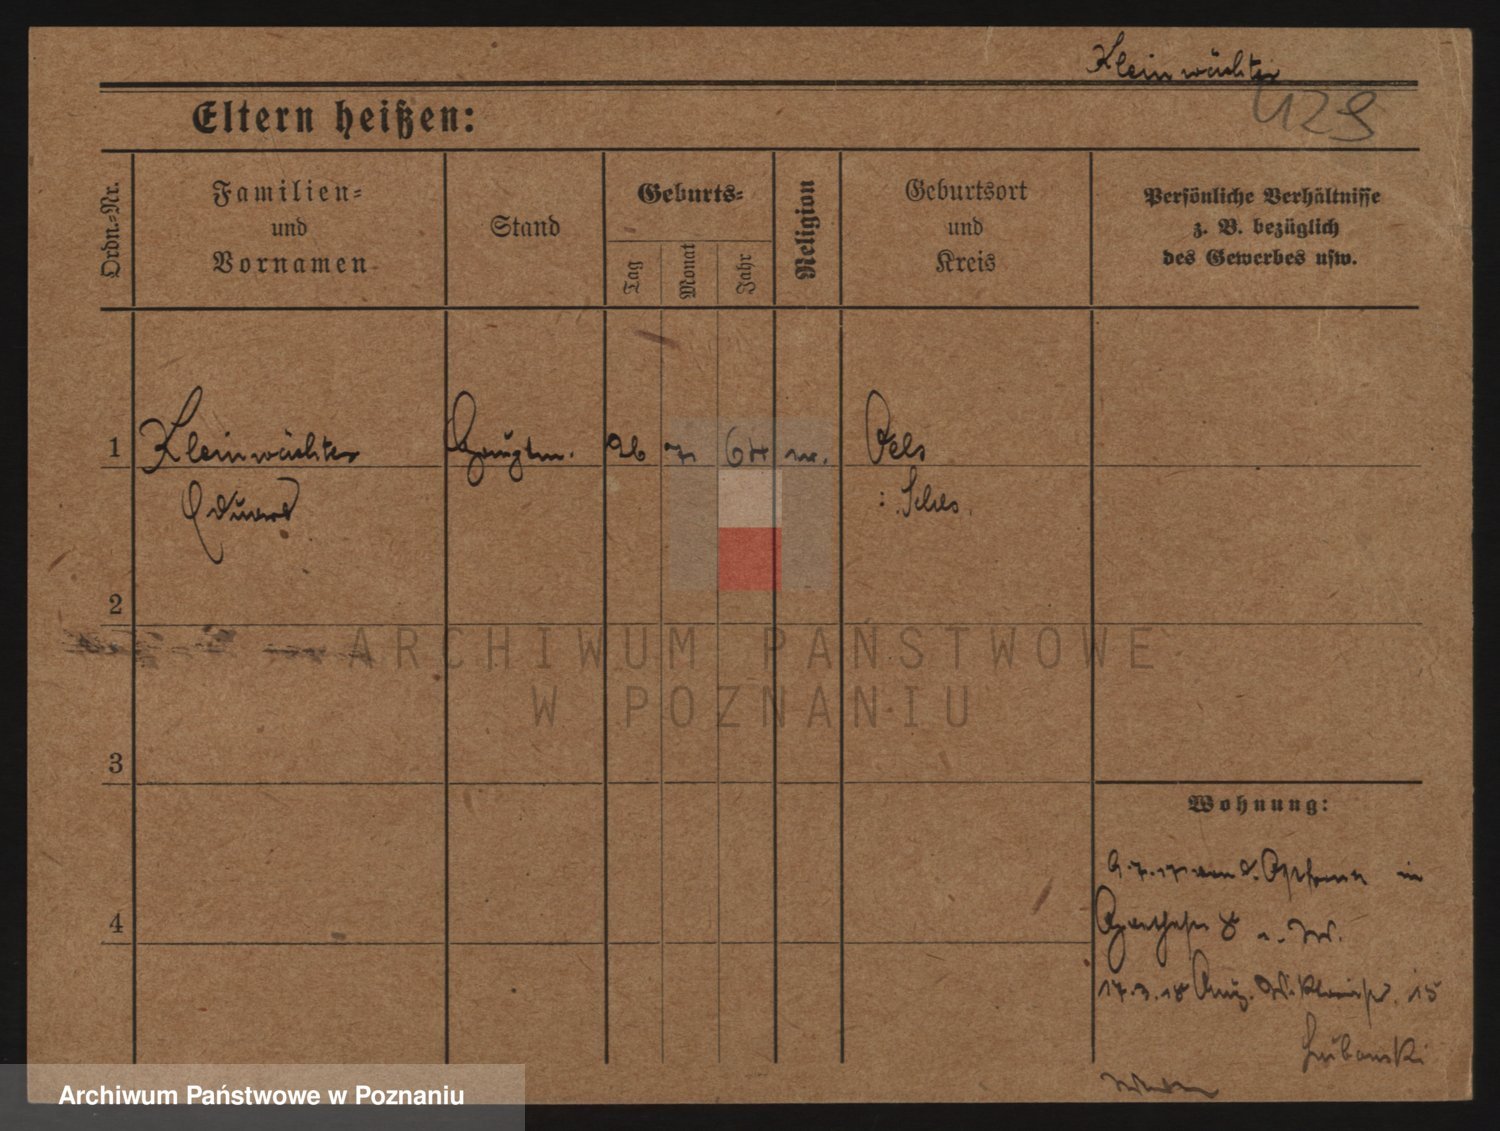 Kleinwächter
429
Eltern heißen:
Ordn.-Nr.
Familien-
und
Vornamen
Stand
Geburts-
Tag
Monat
Jahr
Religion
Geburtsort
und
Kreis
Persönliche Verhältnisse
z. B. bezüglich
des Gewerbes usw.
1 Kleinwächter Hauptm. 26 7. 64
Eduard
Oels
: Schles.
2
3
4
Wohnung:
9.7.17 in
8
17.3.18 15
Lubanski
ARCHIWUM PAŃSTWOWE
W POZNANIU
Archiwum Państwowe w Poznaniu